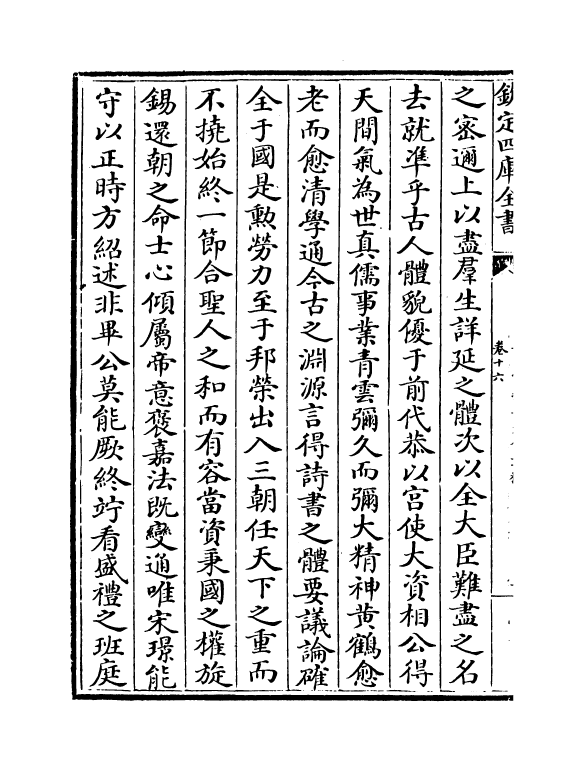 欽定四庫全書
卷十六
之密邇上以盡羣生詳延之體次以全大臣難盡之名
去就準乎古人體貌優于前代恭以宫使大資相公得
天間氣為世真儒事業青雲彌久而彌大精神黄鶴愈
老而愈清學通今古之淵源言得詩書之體要議論確
全于國是勲勞力至于邦榮出入三朝任天下之重而
不撓始終一節合聖人之和而有容當資秉國之權旋
錫還朝之命士心傾屬帝意褒嘉法既變通唯宋璟能
守以正時方紹述非畢公莫能厥終竚看盛禮之班庭